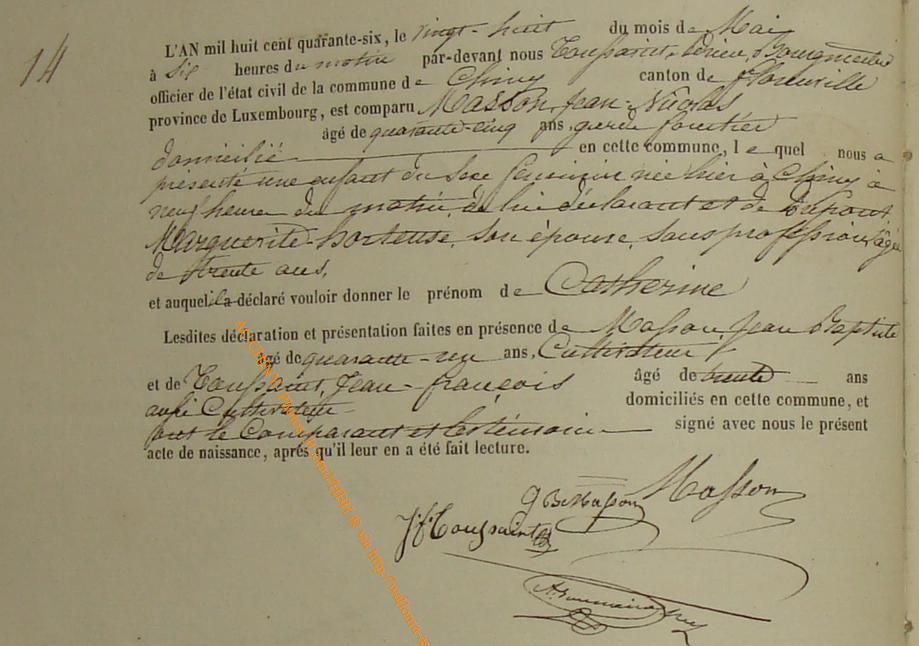 14
L'AN mil huit cent quarante-six, le vingt-huit du mois de Mai
à six heures du matin par-devant nous Toussaint, Bourgmestre
officier de l'état civil de la commune de Chiny canton de florenville
province de Luxembourg, est comparu Masson, Jean-Nicolas
âgé de quarante-cinq ans, garde forestier
domicilié en cette commune, le quel nous a
présenté une enfant du sexe féminin née hier à Chiny à
neuf heures du matin, de lui déclarant et de Dupont,
Marguerite-hortense, son épouse, sans profession, âgée
de trente ans,
et auquel il a déclaré vouloir donner le prénom de Catherine
Lesdites déclaration et présentation faites en présence de Masson Jean Baptiste
âgé de quarante-un ans, Cultivateur
et de Toussaint, Jean-françois âgé de trente ans
aussi Cultivateur domiciliés en cette commune, et
ont le Comparant et les témoins signé avec nous le présent
acte de naissance, après qu'il leur en a été fait lecture.
Masson
J Bte Masson
J. f. Toussaint